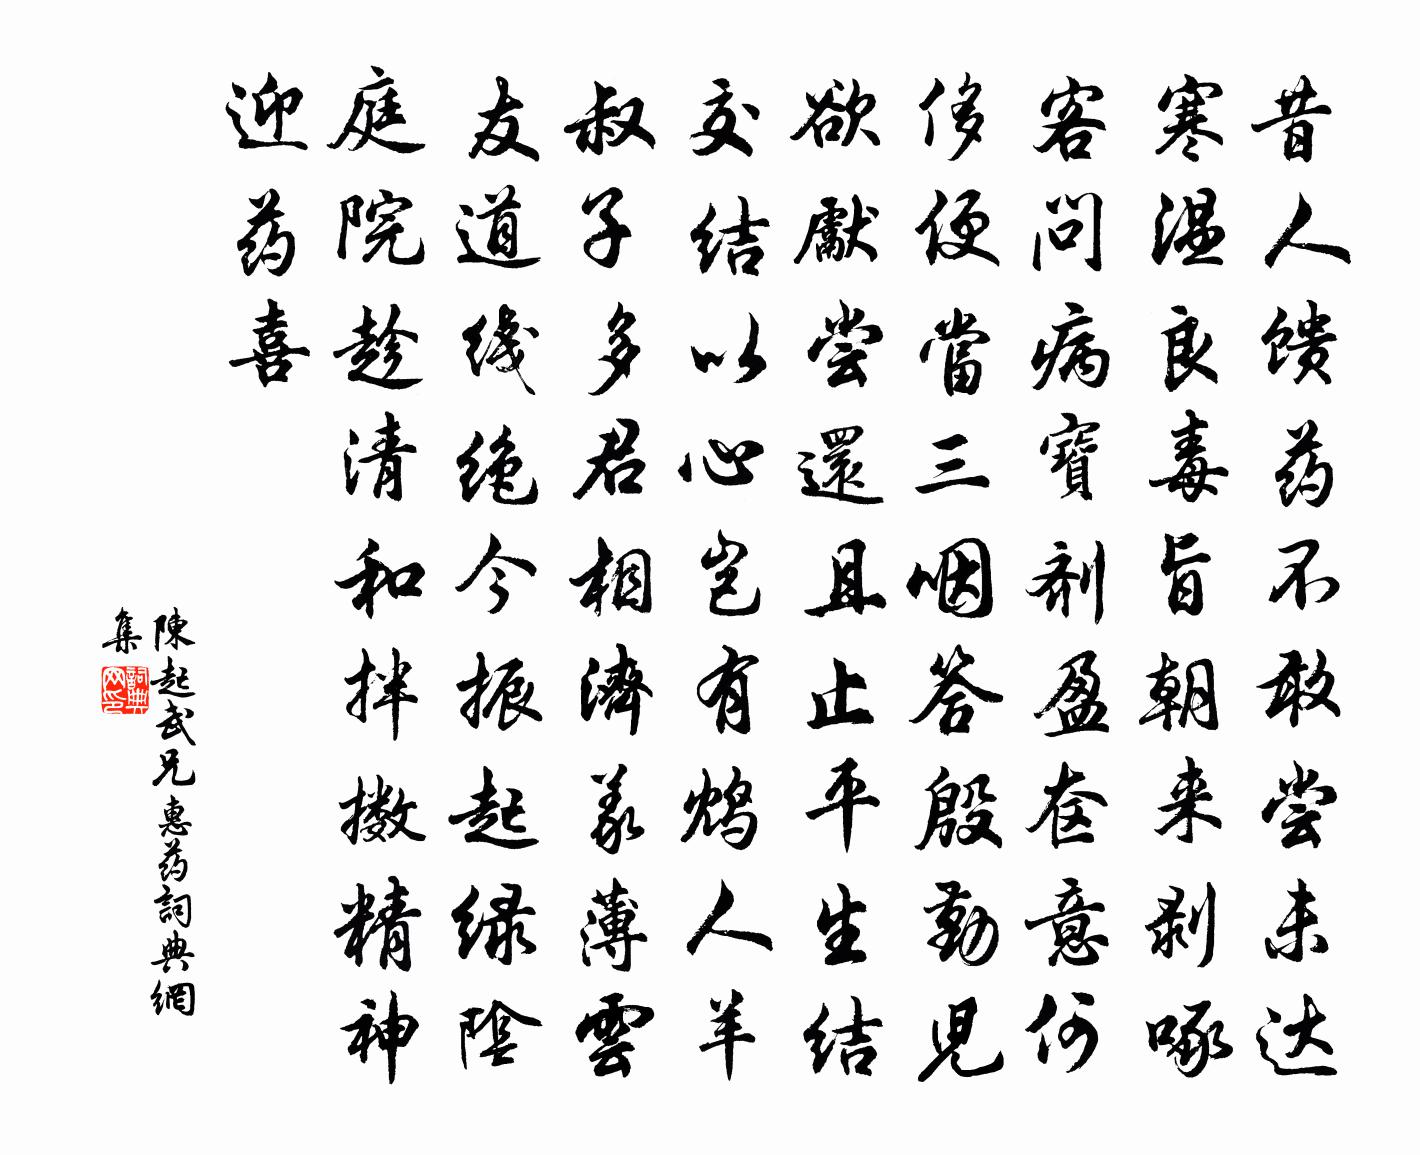 昔人馈药不敢尝未达
寒温良毒旨朝来剥啄
客问病寶剂盈奁意何
侈便當三咽答殷勤児
欲獻尝還且止平生结
交结以心岂有鸩人羊
叔子多君相濟義薄雲
友道线绝今振起绿陰
庭院趁清和拌擻精神
迎药喜
陳起武兄惠药詞典網
集
詞典